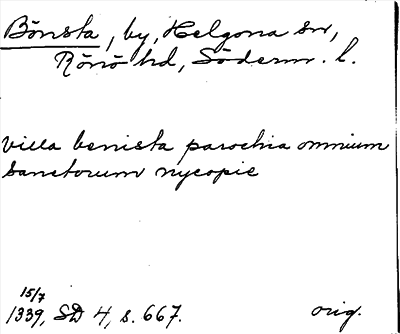 Bönsta, by, Helgona sn,
Rönö hd, Söderm. l.
villa benista parochia omnium
sanctorum nycopie
15/7
1339, SD 4, s. 667. orig.